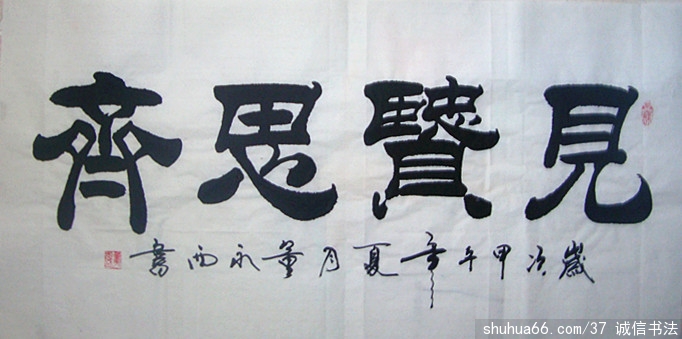 見賢思齊
歲次甲午年夏月董永西書
shuhua66.com/37 诚信书法